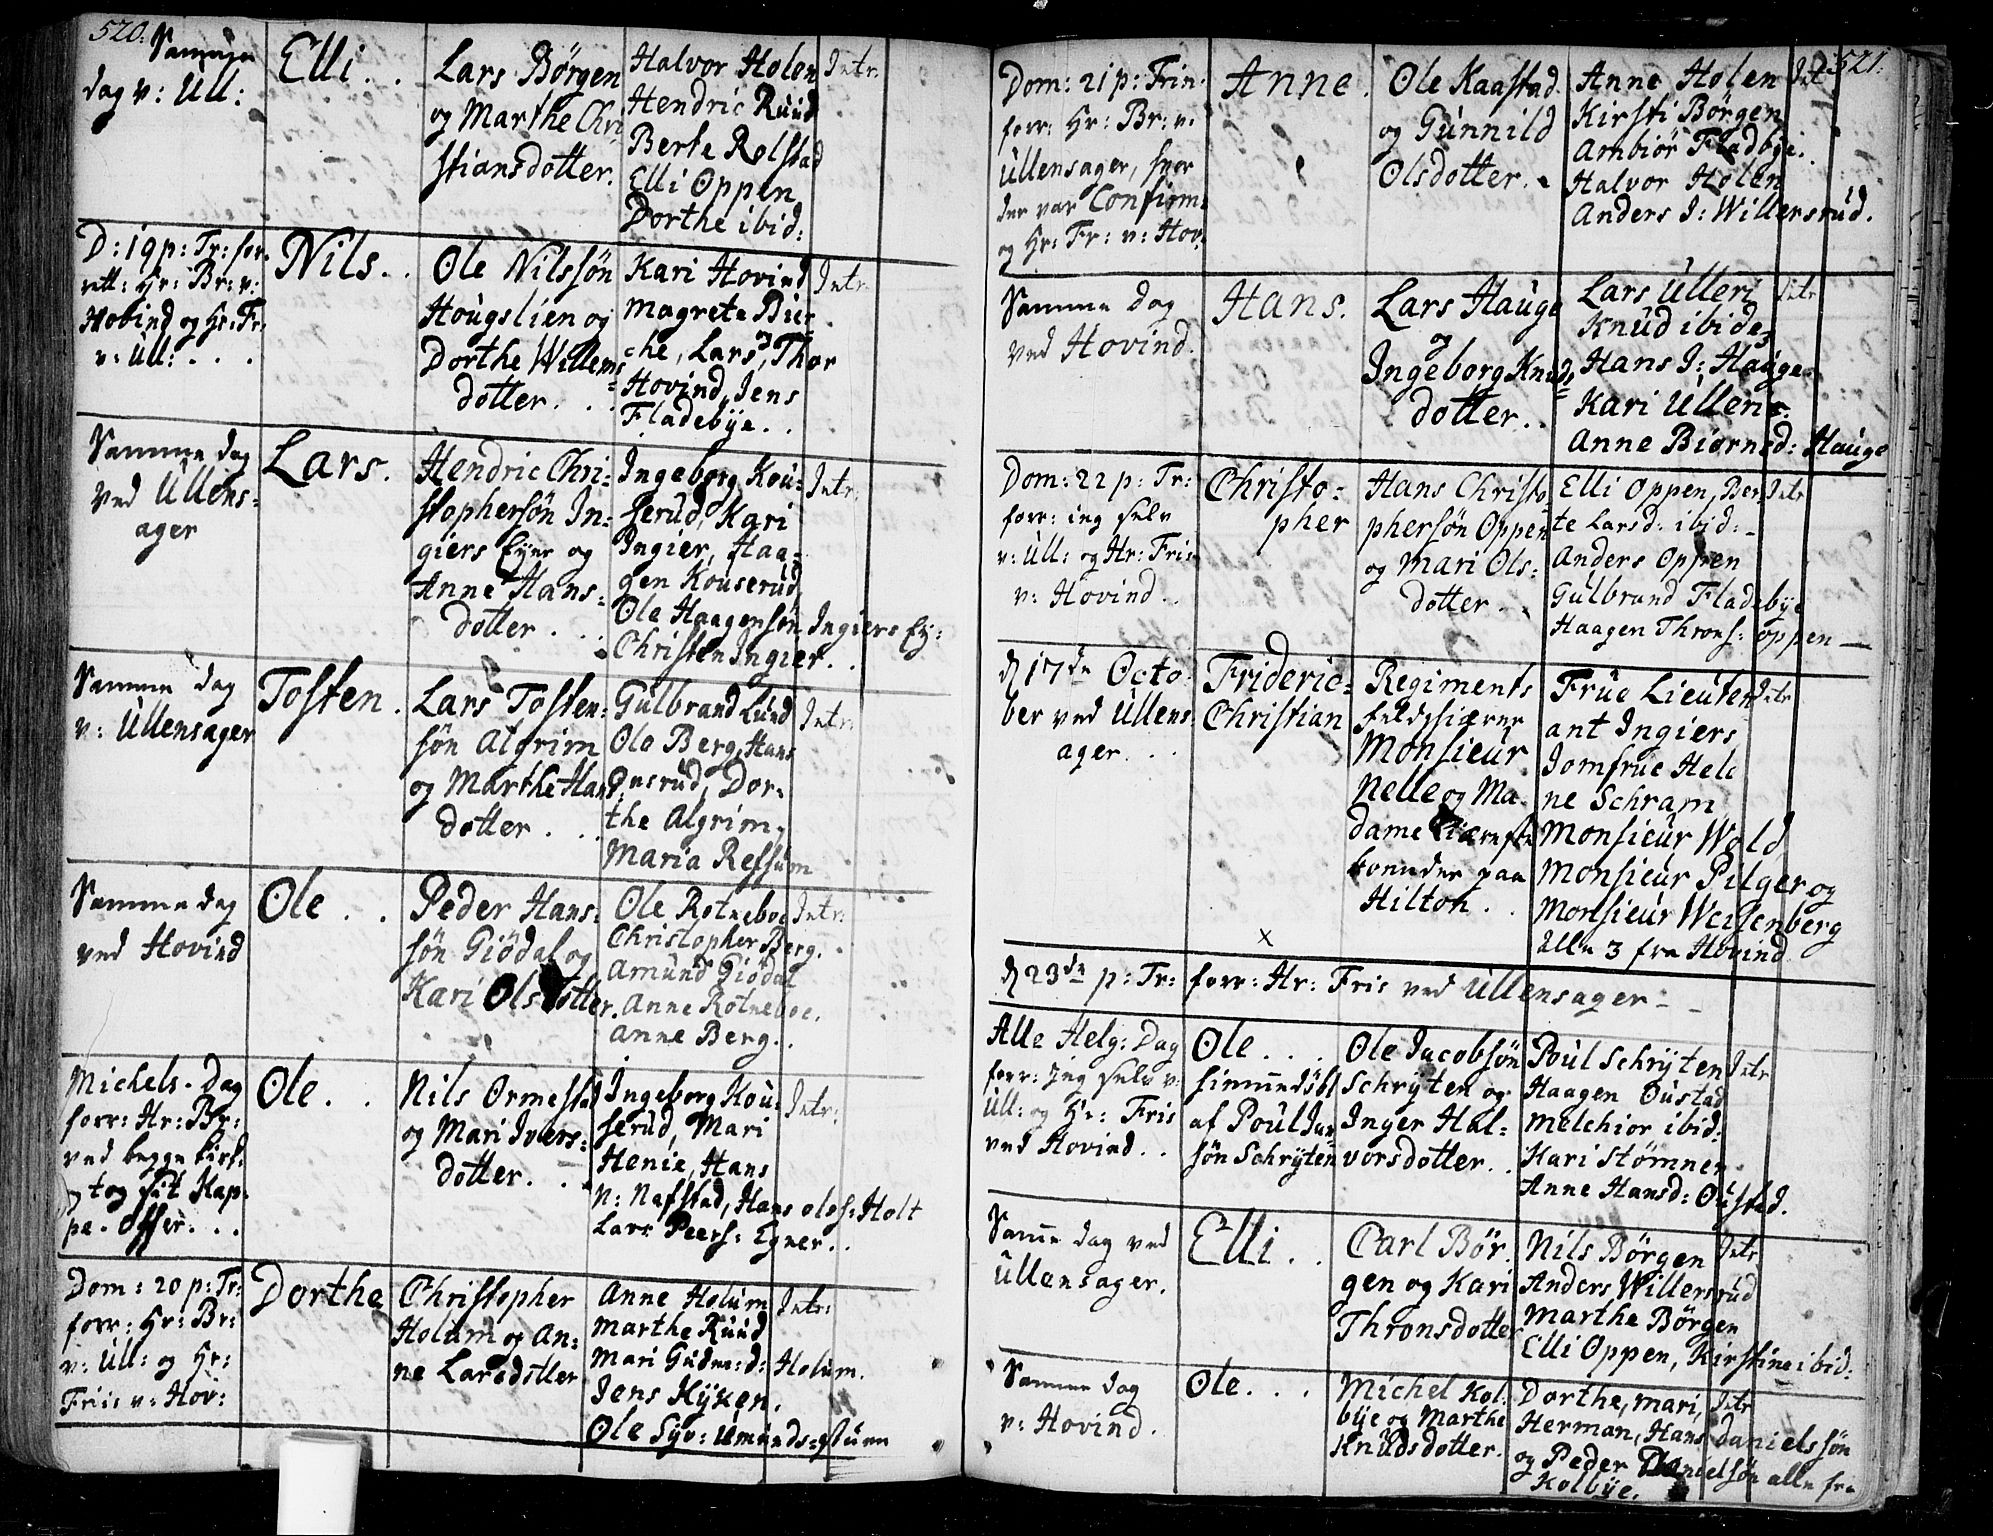 520.
Samme
dag v: Ull:
Elli . .
Lars Börgen
og Marthe Chri
stiansdotter.
Halvor Holen
Hendric Ruud
Berte Rolstad
Elli Oppen
Dorthe ibid:
Intr:
D: 19 p: Tr: for-
rett: Hr: Br: v:
Hobind og Hr: Fr:
v: Ull: . . .
Nils. .
Ole Nilssön
Hougslien og
Dorthe Willems
dotter. . .
Kari Hovind
Magrete Bier
che, Lars, Thor
Hovind, Jens
Fladebÿe. .
Intr.
Samme dag
ved Ullens=
ager
Lars.
Hendric Chri=
stophersön In=
giers Eÿer og
Anne Hans=
dotter . . .
Ingeborg Kou=
serud, Kari
Ingier, Haa=
gen Kouserud
Ole Haagensön Ingiers Eÿ:
Christen Ingier. .
Intr:
Samme dag
v: Ullensager
Tosten.
Lars Tosten=
sön Algrim
og Marthe Hans
dotter . . .
Gulbrand Lund
Ole Berg, Hans
Onsrud, Dor=
the Algrim,
Maria Refsum
Intr:
Samme dag
ved Hovind
Ole . .
Peder Hans=
sön Giödal og
Kari Olsdotter.
Ole Rotneboe
Christopher Berg.
Amund Giödal
Anne Rotneboe.
Anne Berg. .
Intr:
Michels-Dag
forr: Hr: Br:
ved begge Kirk:
og tog sit Kap-
pe-Offer. . .
Ole. .
Nils Ormestad
og Mari Ivers=
dotter. . .
Ingeborg Kou=
serud, Mari
Henie, Hans
N: Nafstad, Hans Olss: Holt
Lars Peers: Egner. .
Intr:
Dom: 20 p: Tr:
forr: Hr: Br:
v: Ull: og Hr:
Friis v: Hov:
Dorthe
Christopher
Holum og An=
ne Larsdotter
Anne Holum
Marthe Ruud
Mari Gudm: d: Holum.
Jens Kÿken.
Ole Sÿv: Umunds=gtuen
Intr:
521.
Dom: 21 p: Trin.
forr: Hr: Br: v:
Ullensager, hvor
der var Confirm:
og Hr: Fr: v: Hov.
Anne.
Ole Kaastad
og Gunnild
Olsdotter. .
Anne Holen
Kirsti Börgen
Ambiör Fladbÿe.
Halvor Holen
Anders I: Willersrud.
Intr
Samme dag
ved Hovind.
Hans.
Lars Hauge
og
Ingeborg Knuds
dotter. .
Lars Ulleri
Knud ibid.
Hans I: Hauge
Kari Ulleri.
Anne Biörnsd: Hauge
Intr
Dom: 22 p: Tr:
forr: jeg selv
v: Ull: og Hr: Friis
v: Hovind. .
Christo=
pher
Hans Christo
phersön Oppen
og Mari Ols=
dotter . .
Elli Oppen, Ber=
te Larsd: ibid:
Anders Oppen
Gulbrand Fladebÿe
Haagen Throns: Oppen —
Intr
d 17de Octo
ber ved Ullens
ager. . .
Frideric=
Christian
Regiments
feldskiærer
Monsieur
Nelle og Ma=
dame Kiæreste
boende paa
Hilton . .
Frue Lieuten
ant Ingiers
Jomfrue Hele
ne Schram
Monsieur Wold
Monsieur Pilger og
Monsieur Weisenberg
Alle 3 fra Hovind.
Intr
x
d 23de p: Tr: forr: Hr: Friis ved Ullensager - -
Alle Helg: Dag
forr: jeg selv v:
Ull: og Hr: Fris
ved Hovind. .
Ole. . .
hiemmedöbt
af Poul Jan
sön Schrÿten
Ole Jacobsön
Schrÿten og
Inger Hal=
vorsdotter. .
Poul Schrÿten
Haagen Oustad
Melchior ibid:
Kari Stömner
Anne Hansd: Oustad.
Intr
Samme dag ved
Ullensager.
Elli . .
Carl Bör
gen og Kari
Thronsdotter
Nils Börgen
Anders Willersrud
Marthe Börgen
Elli Oppen, Kirstine ibid:
Intr
Samme dag
v: Hovind.
Ole. . .
Michel Kol=
bÿe og Marthe
Knudsdotter.
Dorthe, Mari,
Herman, Hans Danielssön
og Peder Danielsön alle fra
Kolbÿe.
Intr